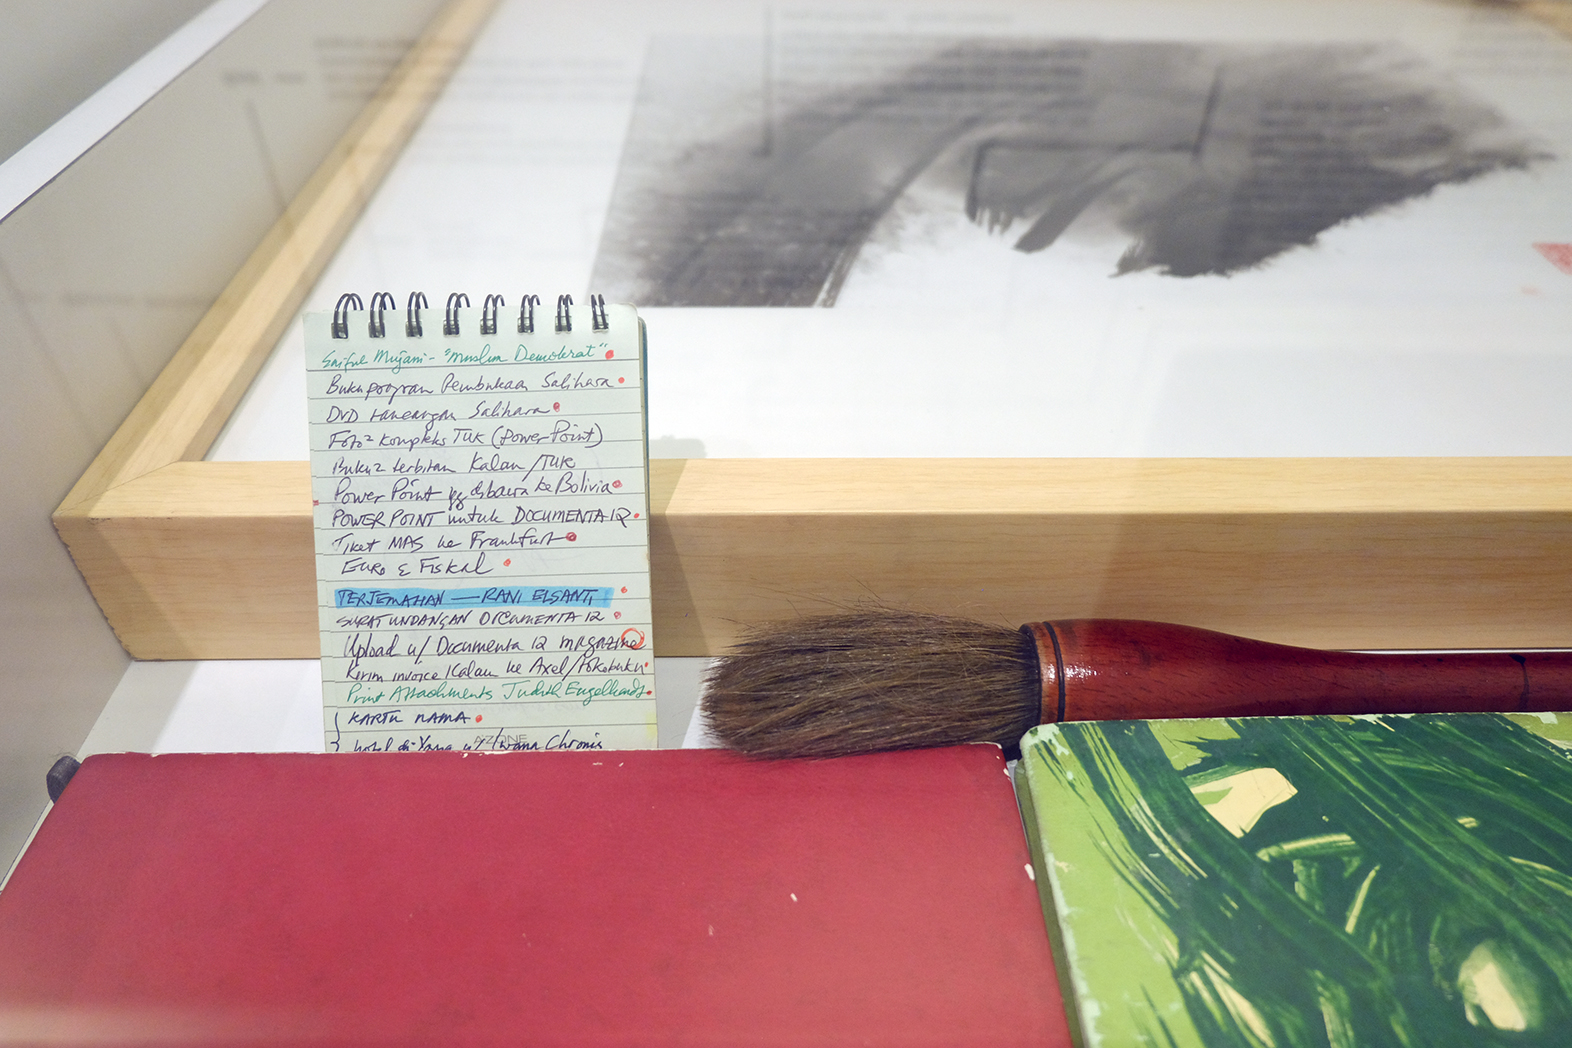 Saiful Mujani - "Muslim Demokrat"
Buku program Pembukaan Salihara
DVD rancangan Salihara
Foto² kompleks TUK (PowerPoint)
Buku2 terbitan Kalam/TUK
Power Point yg dibawa ke Bolivia
POWER POINT untuk DOCUMENTA 12
Tiket MAS ke Frankfurt
Euro & Fiskal
TERJEMAHAN — RANI ELSANTI
SURAT UNDANGAN DOCUMENTA 12
Upload u/ Documenta 12 magazine
Kirim invoice Kalam ke Axel/Tokobuku
Print Attachments Judith Engelhardt
KARTU NAMA
hotel di